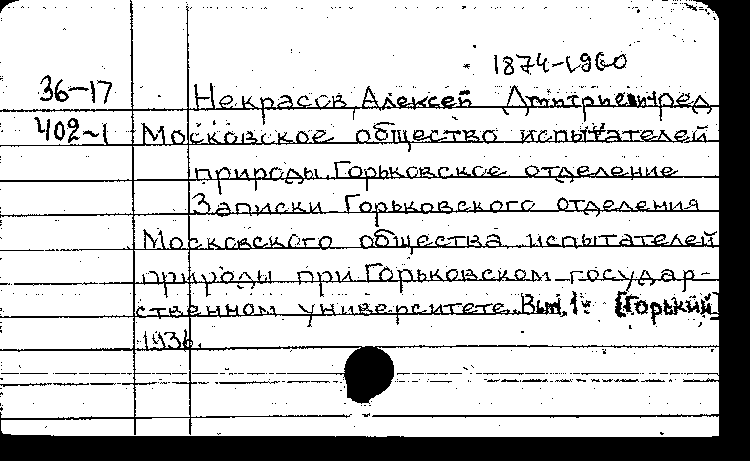 1874-1960
36-17 Некрасов, Алексей Дмитриевич ред
402-1 Московское общество испытателей
природы. Горьковское отделение
Записки Горьковского отделения
Московского общества испытателей
природы при Горьковском государ-
ственном университете. Вып. 1. [Горький]
1936.